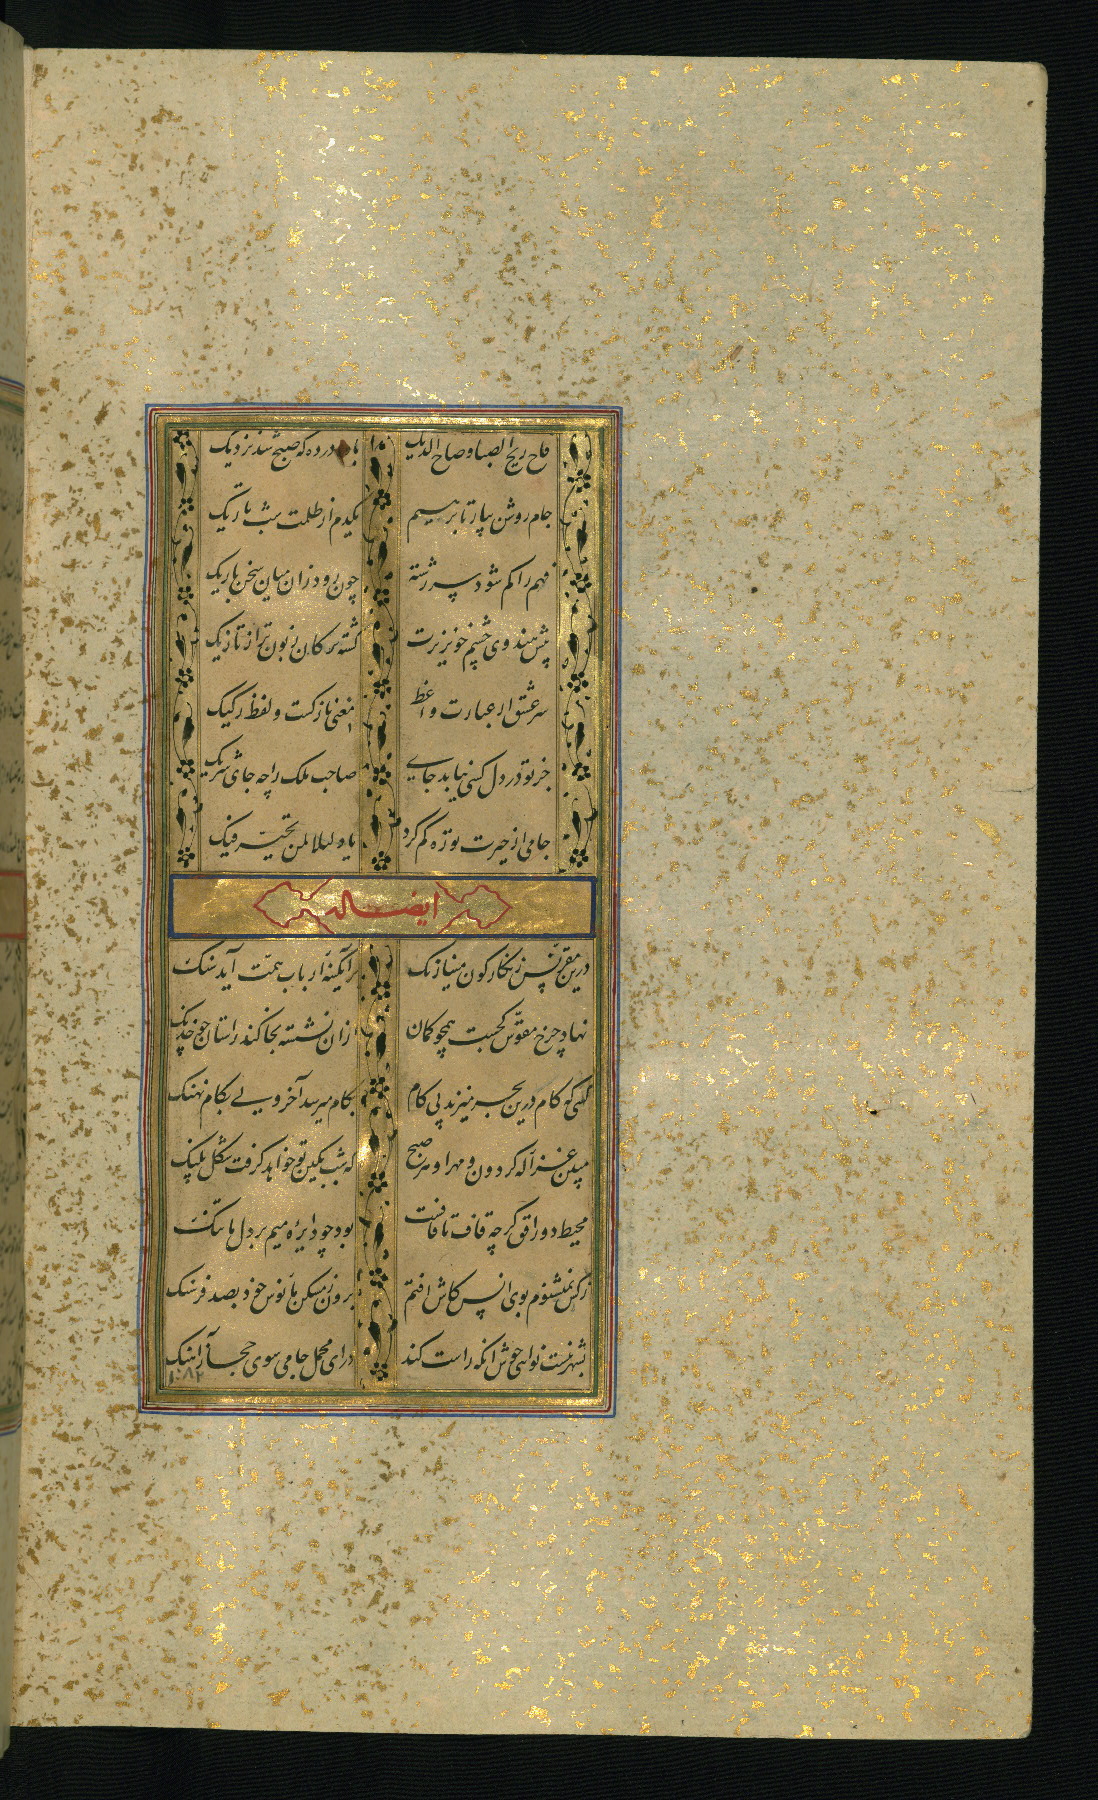 فاح ریح الصبا وصاح الدیک باده درده که صبح شد نزدیک
جام روشن بیار تا برهیم یکدم از ظلمت شب تاریک
فهم را کم شود سر رشته چون رود زان میان سخن باریک
پیش هندوی چشم خونریزت گشته ترکان زبون تر از تازیک
سر عشق از عبارت واعظ معنی نازکست و لفظ رکیک
جز تو در دل کسی نیابد جای صاحب ملک را چه جای شریک
جامی از حیرت تو ره گم کرد یا دلیلا لمن تحیر فیک
ایضا له
درین مقرنس زنگارگون مینا رنگ بر آبگینه ارباب همت آید سنگ
نهاد چرخ مقوس کجست همچو کمان ازان نشسته بخاکند راستان چو خدنگ
کسی که کام درین بحر میزند پی کام بکام میرسد آخر ولی بکام نهنگ
مبین غزاله گردون و مهر او هر صبح که شب بکین تو خواهد گرفت شکل پلنگ
محیط دور افق گرچه قاف تا قافست بود چو دایره میم بر دل ما تنگ
زکس نمیشنوم بوی انس کاش افتم برون ز مسکن مانوس خود بصد فرسنگ
نشهرتست نوایی خوش انکه راست کند درای محمل جامی سوی حجاز آهنگ
۱۰۸۲